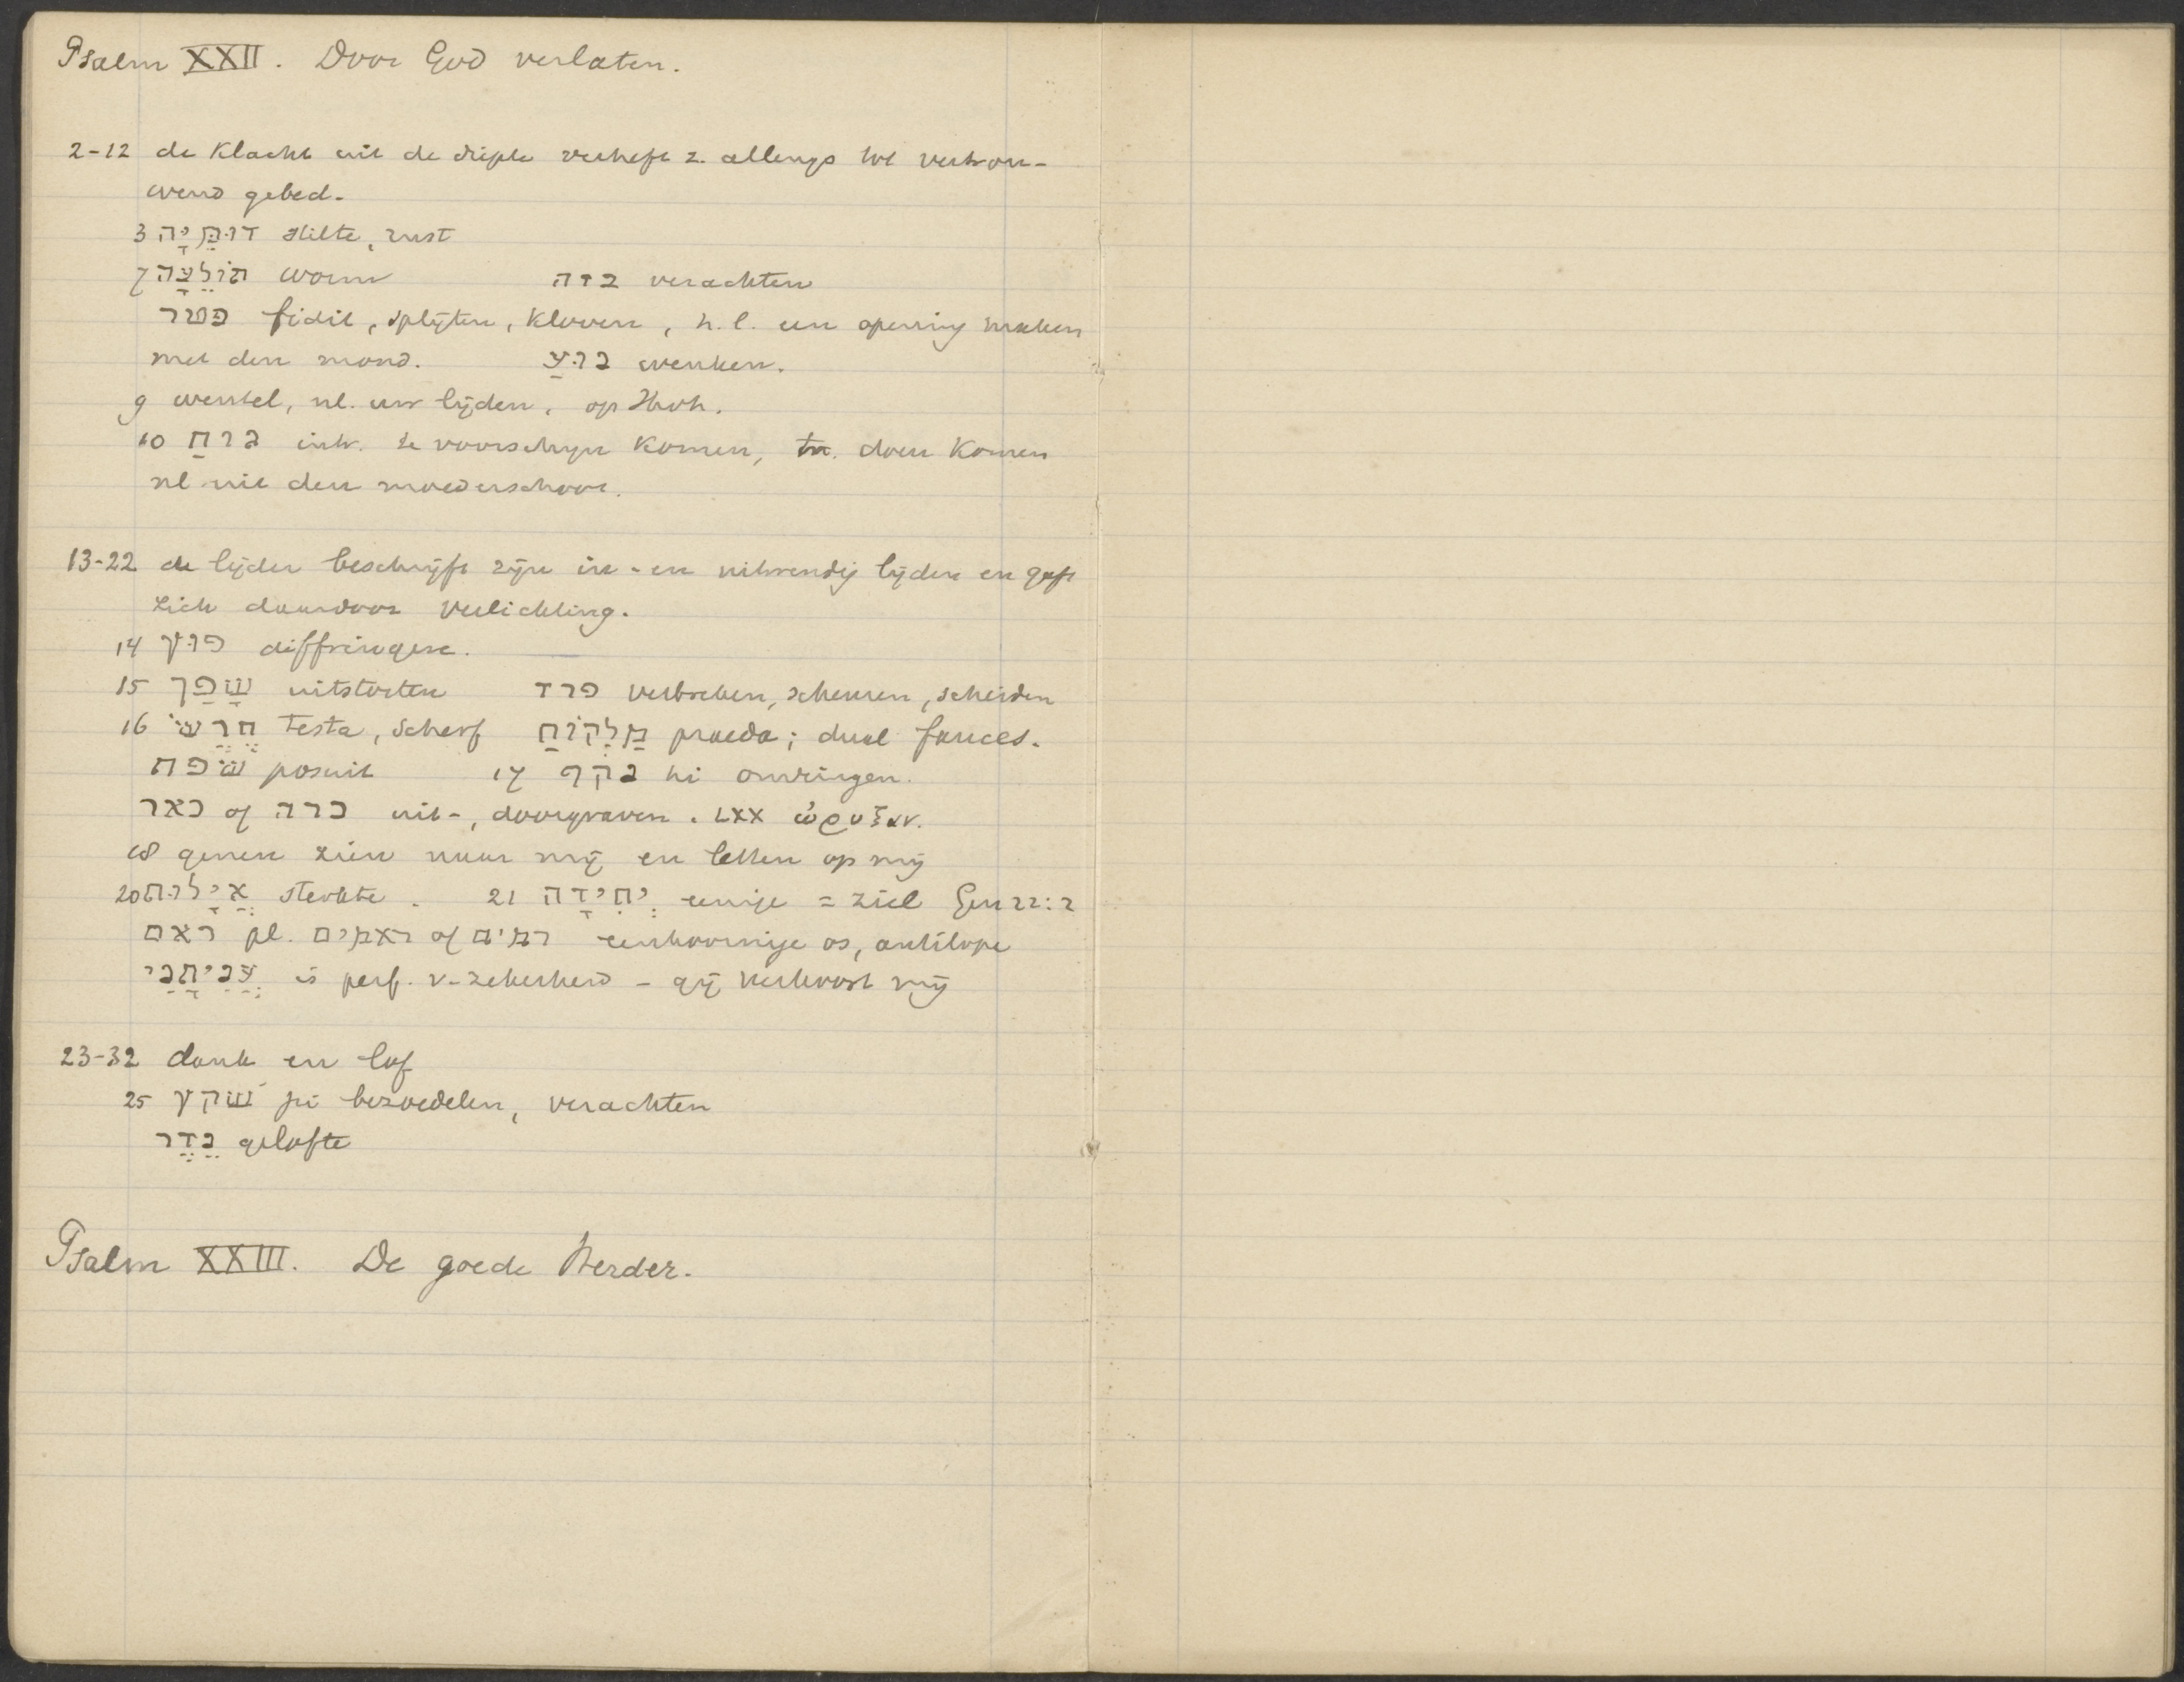 Psalm XXII. Door God verlaten.
2-12 de klacht uit de diepte verheft z. allengs tot vertrou-
wend gebed.
3 דוּמִיָה stilte, rust
7 תּוֹלֵעָה worm בזה verachten
פטר fidit, splijten, kloven, h.l. een opening maken
met den mond. נוּעַ wenken.
9 wentel, nl. uw lijden, op Jhvh.
10 גוּחַ intr. te voorschijn komen, tr. doen komen
nl uit den moederschoot.
13-22 de lijder beschrijft zijn in- en uitwendig lijden en geeft
zich daardoor verlichting.
14 פרץ diffringere.
15 שָׁפַך uitstorten פרד verbreken, scheuren, scheiden
16 חֶרֶשׂ testa, scherf מַלְקוֹחַ praeda; dual fauces.
שׁפת posuit 17 נקף hi omringen.
כאר of כרה uit-, doorgraven. LXX ὠρυξαν.
18 genen zien naar mij en letten op mij
20 אֱיָלוּת sterkte. 21 יְחִידָה eenige = ziel Gen 22:2
ראם pl. ראמים of רמים eenhoornige os, antilope
עֲנִיתָנִי is perf. v. zekerheid - gij verhoort mij
23-32 dank en lof
25 שׁקץ pi bezoedelen, verachten
נֵדֶר gelofte
Psalm XXIII. De goede Herder.